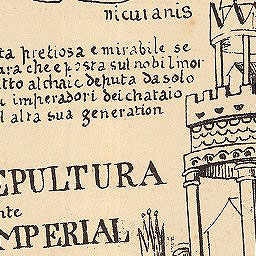 niculanis
ta pretiosa e mirabile se
ara che e posta sul nobil mor
tto al chaic deputa da solo
i imperadori dei chataio
l alta sua generation
EPULTURA
nte
MPERIAL